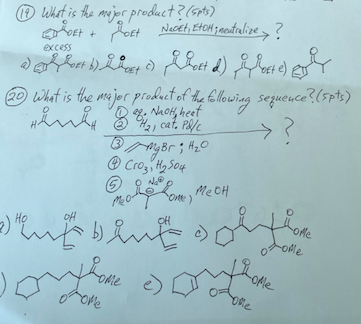 (19) What is the major product? (5pts)
O O
OEt + OEt NaOEt, EtOH; neutralize ?
excess
a) OEt b) OEt c) OEt d) OEt e)
(20) What is the major product of the following sequence? (5pts)
① aq. NaOH, heat
② H2, cat. Pd/c
H H ?
③ MgBr ; H2O
④ CrO3, H2SO4
⑤ Na⊕
MeO OMe, MeOH
HO OH
a) b) OH c) OMe
OMe
d) OMe e) OMe
OMe OMe